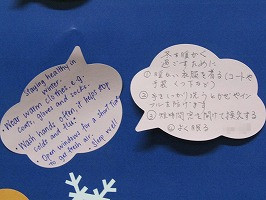 Staying healthy in
winter.
• Wear warm clothes e.g.
coats, gloves and socks.
• Wash hands often, it helps stop
colds and flu.
• Open windows for a short time
to get fresh air.
• Sleep well
冬を暖かく
過ごすために
① 暖かい衣服を着る(コートや
手袋 くつ下など)
② 手をしっかり洗う かぜやイン
フルを防げます
③ 短時間窓を開けて換気する
④ よく眠る